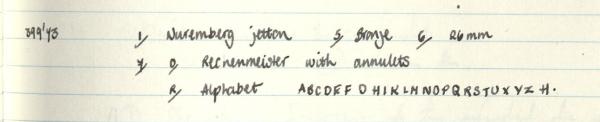 399'43 1/ Nuremberg jetton 5/ Bronze 6/ 26mm
7/ O/ Recnenmeister with annulets
R/ Alphabet ABCDEFF O HIKLHNOPQRSTUXYZ H.